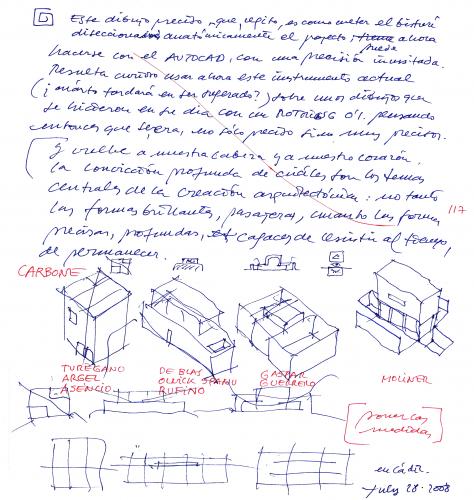 Este dibujo preciso, que, repito, es como meter el bisturí
diseccionando anatómicamente el proyecto, ahora
puede
hacerse con el AUTOCAD, con una precisión inusitada.
Resulta curioso usar ahora este instrumento actual
(¿cuánto tardará en ser superado?) sobre unos dibujos que
se hicieron en su día con un ROTRING 0'1. pensando
entonces que se era, no sólo preciso sino muy preciso.
Y vuelve a nuestra cabeza y a nuestro corazón.
la convicción profunda de cuáles son los temas
centrales de la creación arquitectónica: no tanto
las formas brillantes, pasajeras, cuanto las formas
117
precisas, profundas, capaces de resistir al tiempo,
de permanecer.
CARBONE
TUREGANO
ARGEL
ASENCIO
DE BLAS
OLNICK SPANU
RUFINO
GASPAR
GUERRERO
MOLINER
poner las
medidas
en Cádiz.
July 28. 2008